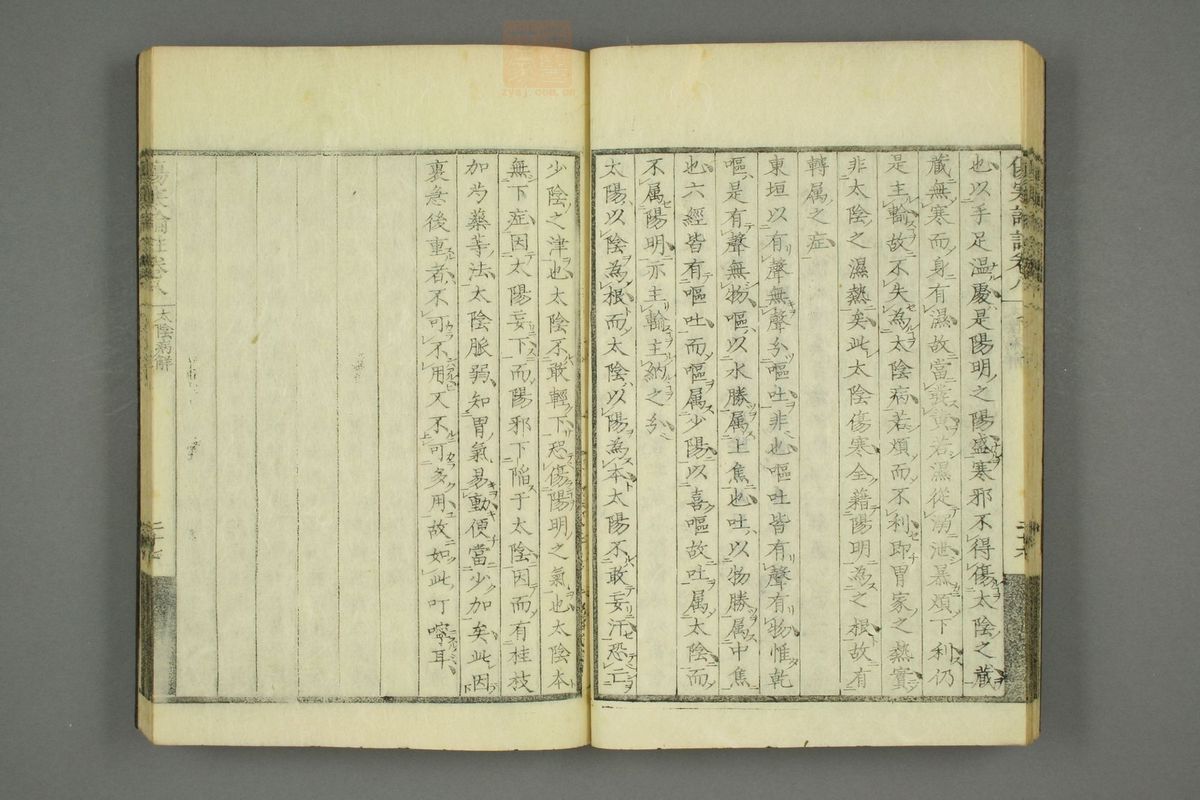 也以手足溫處是陽明之陽盛寒邪不得傷太陰之藏
藏無寒而身有濕故當發黃若濕從湧泄暴煩下利仍
是主輸故不失為太陰病若煩而不利即胃家之熱實
非太陰之濕熱矣此太陰傷寒全藉陽明為之根故有
轉属之症
東垣以有聲無聲分嘔吐非也嘔吐皆有聲有物惟乾
嘔是有聲無物嘔以水勝属上焦也吐以物勝属中焦
也六經皆有嘔吐而嘔属少陽以喜嘔故吐属太陰而
不属陽明亦主輸主納之分
太陽以陰為根而太陰以陽為本太陽不敢妄汗恐亡
少陰之津也太陰不敢輕下恐傷陽明之氣也太陰本
無下症因太陽妄下而陽邪下陷于太陰因而有桂枝
加芍藥等法太陰脈弱知胃氣易動便當少加矣此因
裏急後重者不可不用又不可多用故如此叮嚀耳
太陰病解
zysj.com.cn